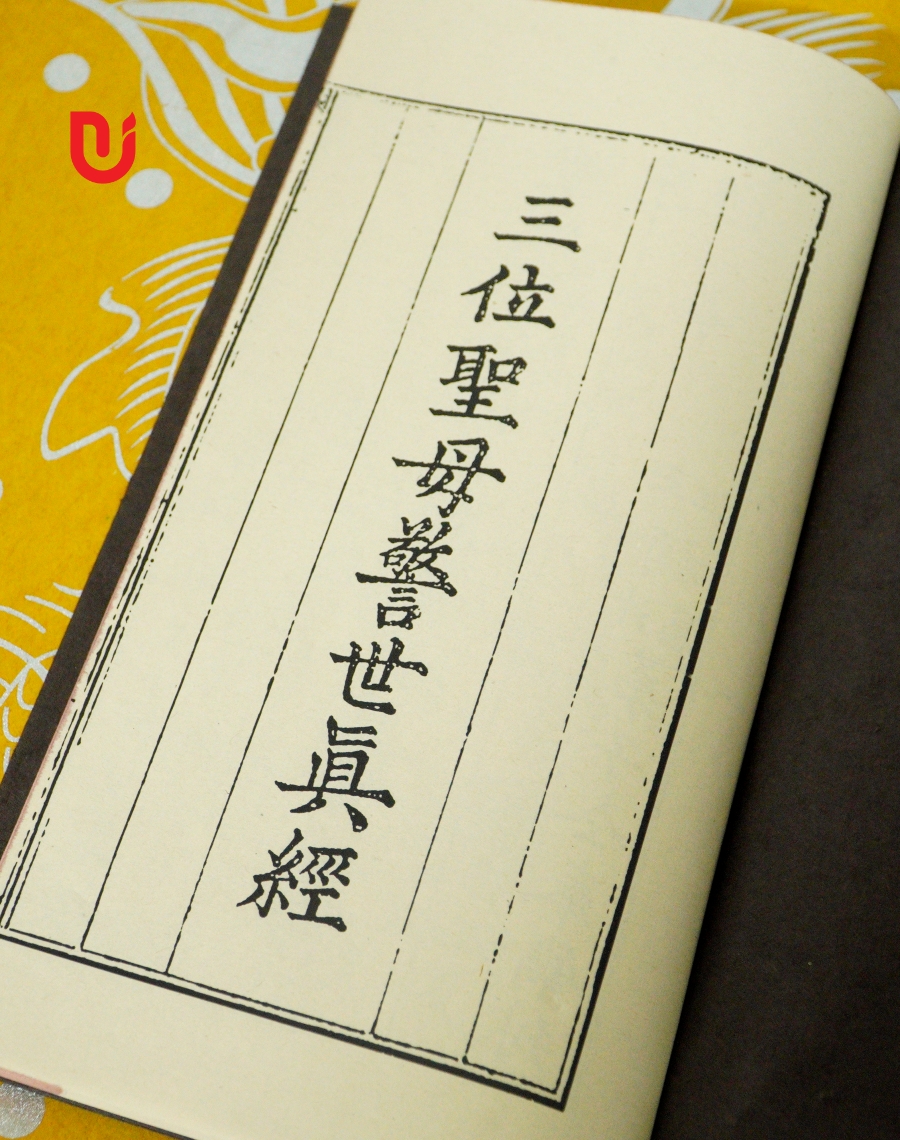 三位聖母警世眞經